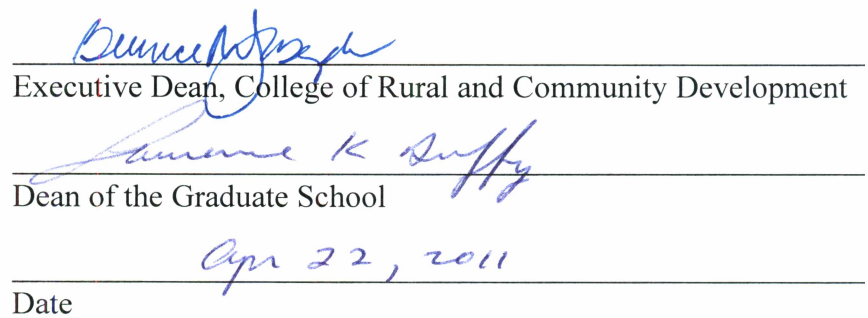 Bernice M Joseph
Executive Dean, College of Rural and Community Development
Lawrence K Duffy
Dean of the Graduate School
Apr 22, 2011
Date